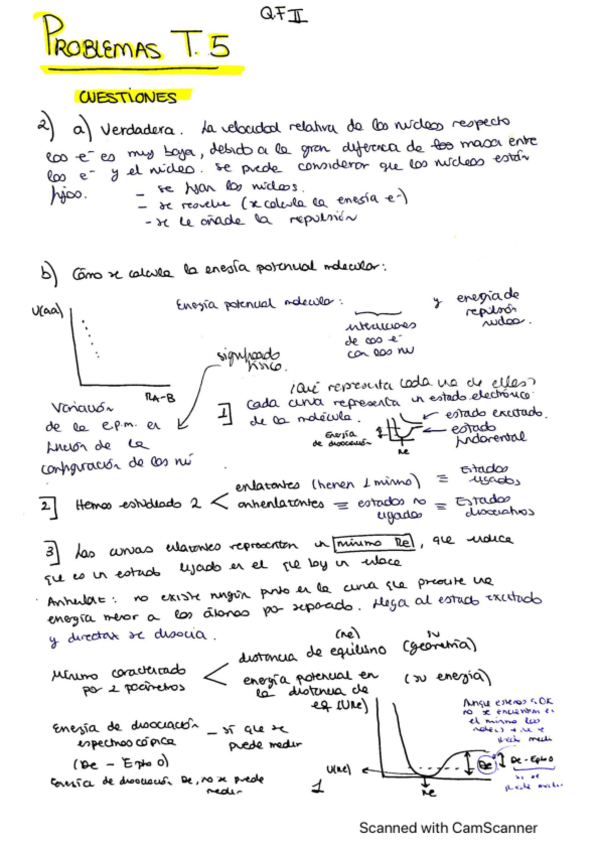 Q.F II
PROBLEMAS T.5
CUESTIONES
2) a) Verdadera. La velocidad relativa de los núcleos respecto
los e- es muy baja, debido a la gran diferencia de los masa entre
los e- y el núcleo. Se puede considerar que los núcleos están
fijos. - se fijan los núcleos.
- se resuelve (x calcula la energía e-)
- se le añade la repulsión
b) Cómo se calcula la energía potencial molecular:
U(aa)
Energía potencial molecular:
interacciones
de los e-
con los nu
y energía de
repulsión
nuclear.
RA-B
significado
físico.
Variación
de la e.p.m. en
función de la
configuración de los nú
¿Qué representa cada una de ellas?
1] Cada curva representa un estado electrónico
de la molécula.
Energía
de disociación
Re
estado excitado.
estado
fundamental
2] Hemos estudiado 2
enlazantes (tienen 1 mínimo) = Estados
ligados
antienlazantes = estados no
ligados
= Estados
disociativos
3] Las curvas enlazantes representan un mínimo Re, que indica
que es un estado ligado en el que hay un enlace
Antienlazte: no existe ningún punto en la curva que presente una
energía menor a los átomos por separado. Llega al estado excitado
y directam se disocia.
Mínimo caracterizado
por 2 parámetros
(re)
distancia de equilibrio (geometría)
energía potencial en (su energía)
la distancia de
eq. U(Re)
Energía de disociación
espectroscópica
(De - Epto 0)
- sí que se
puede medir
Energía de disociación De, no se puede
medir
U(Re)
Re
De
De - Epto 0
1
Scanned with CamScanner